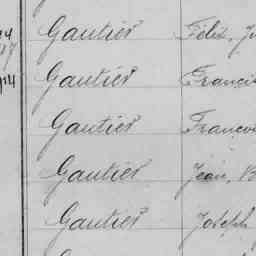 Gautier Félix, J
Gautier Franci
Gautier Franco
Gautier Jean, B
Gautier Joseph